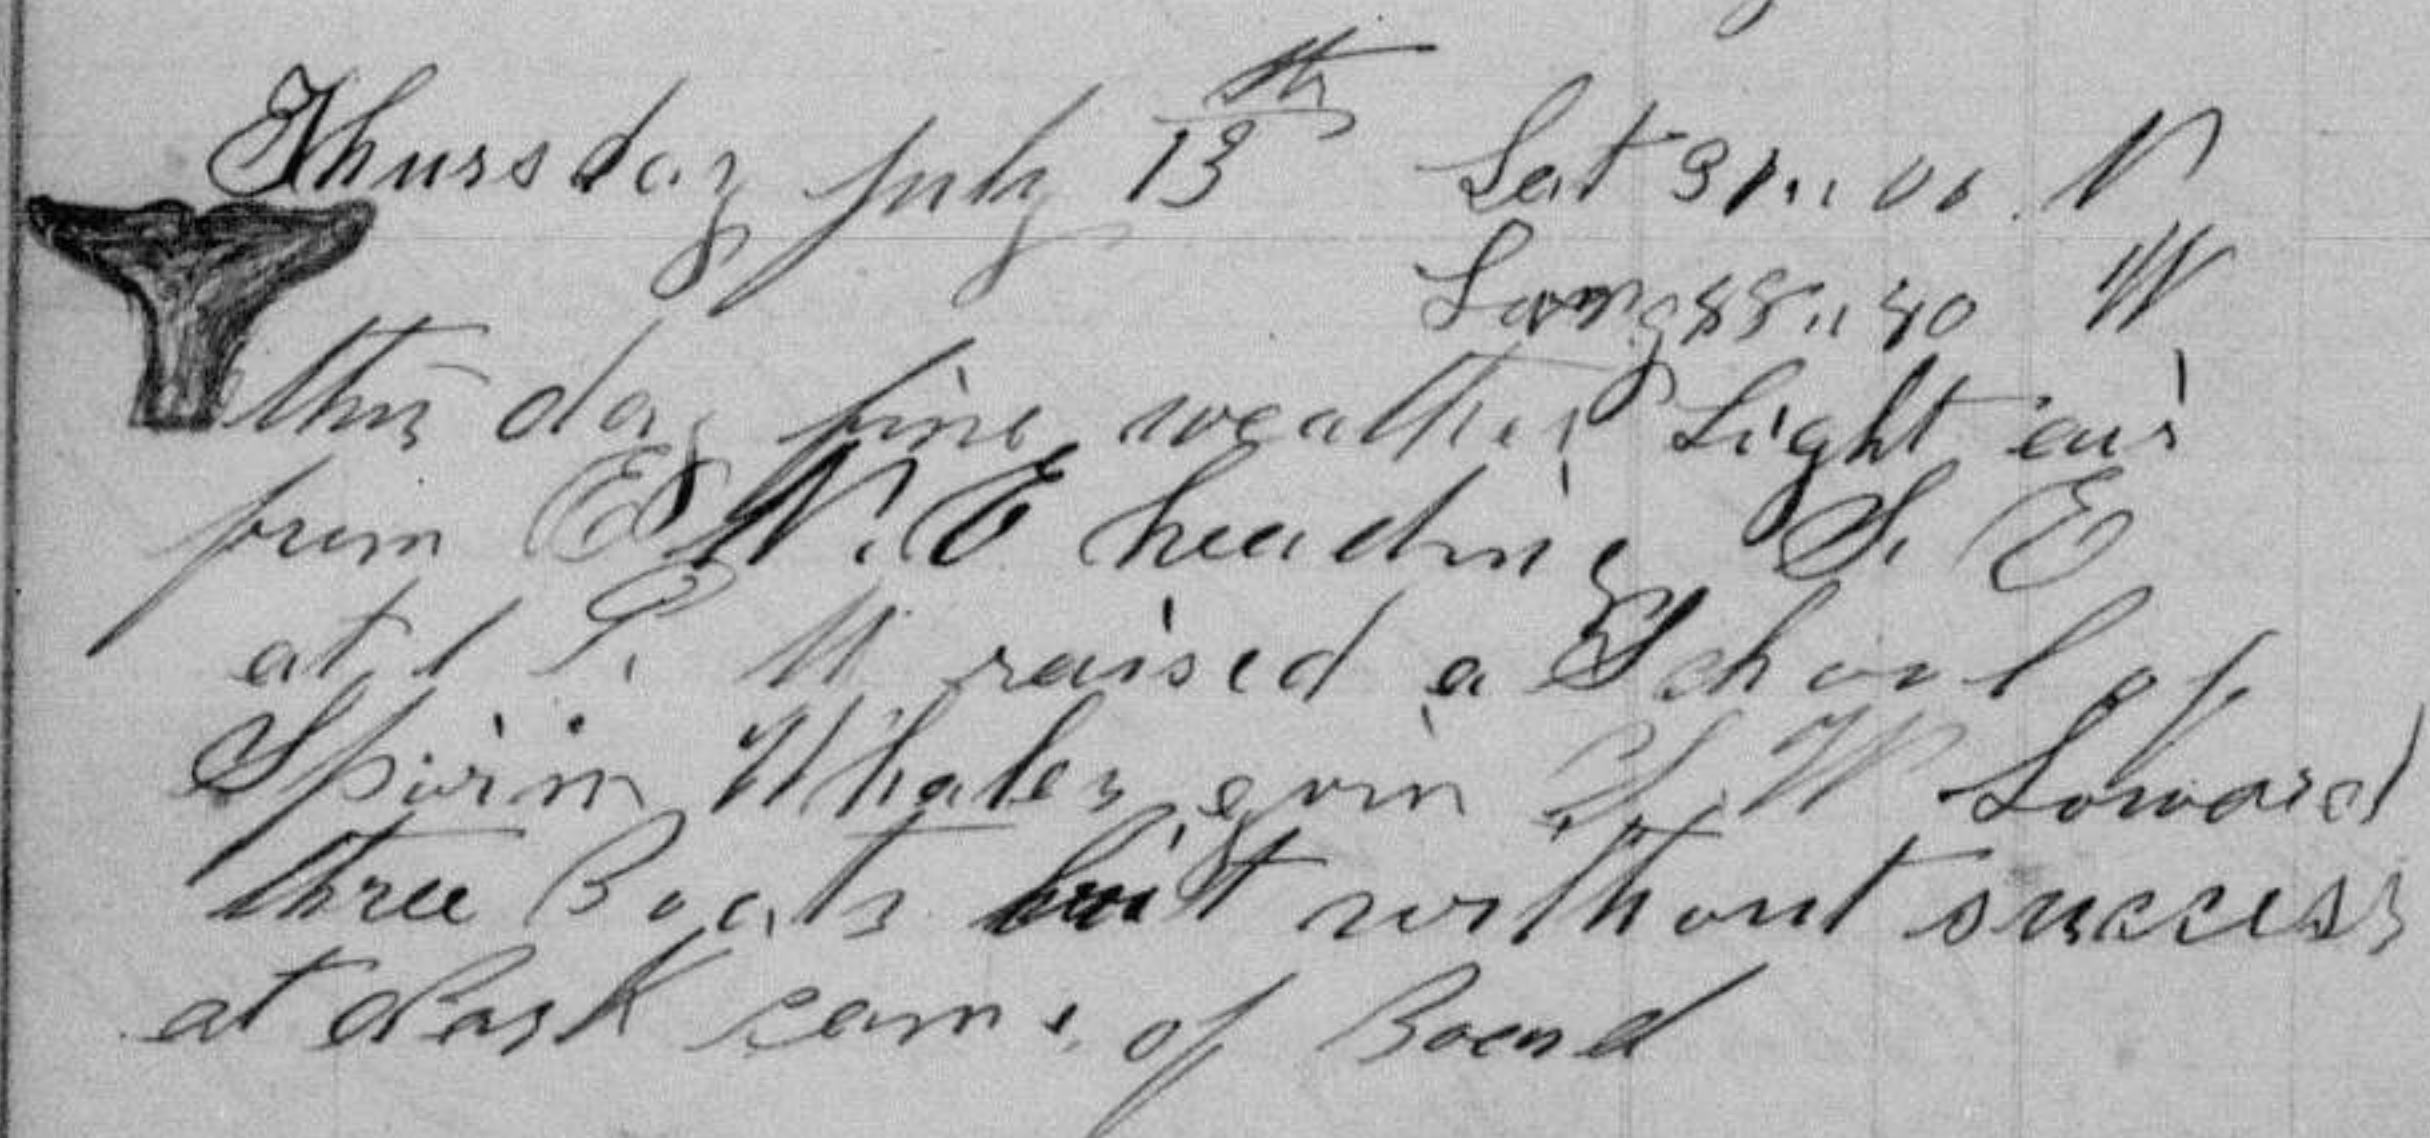 Thursday July 13th Lat 31 ,, 00 N
Long ,, 40 W
this day fine weather Light air
from E N. E heading S. E
at 1 P. M raised a School of
Spirim Whales goin S. W Loward
three Boats but without success
at dark came of Boend